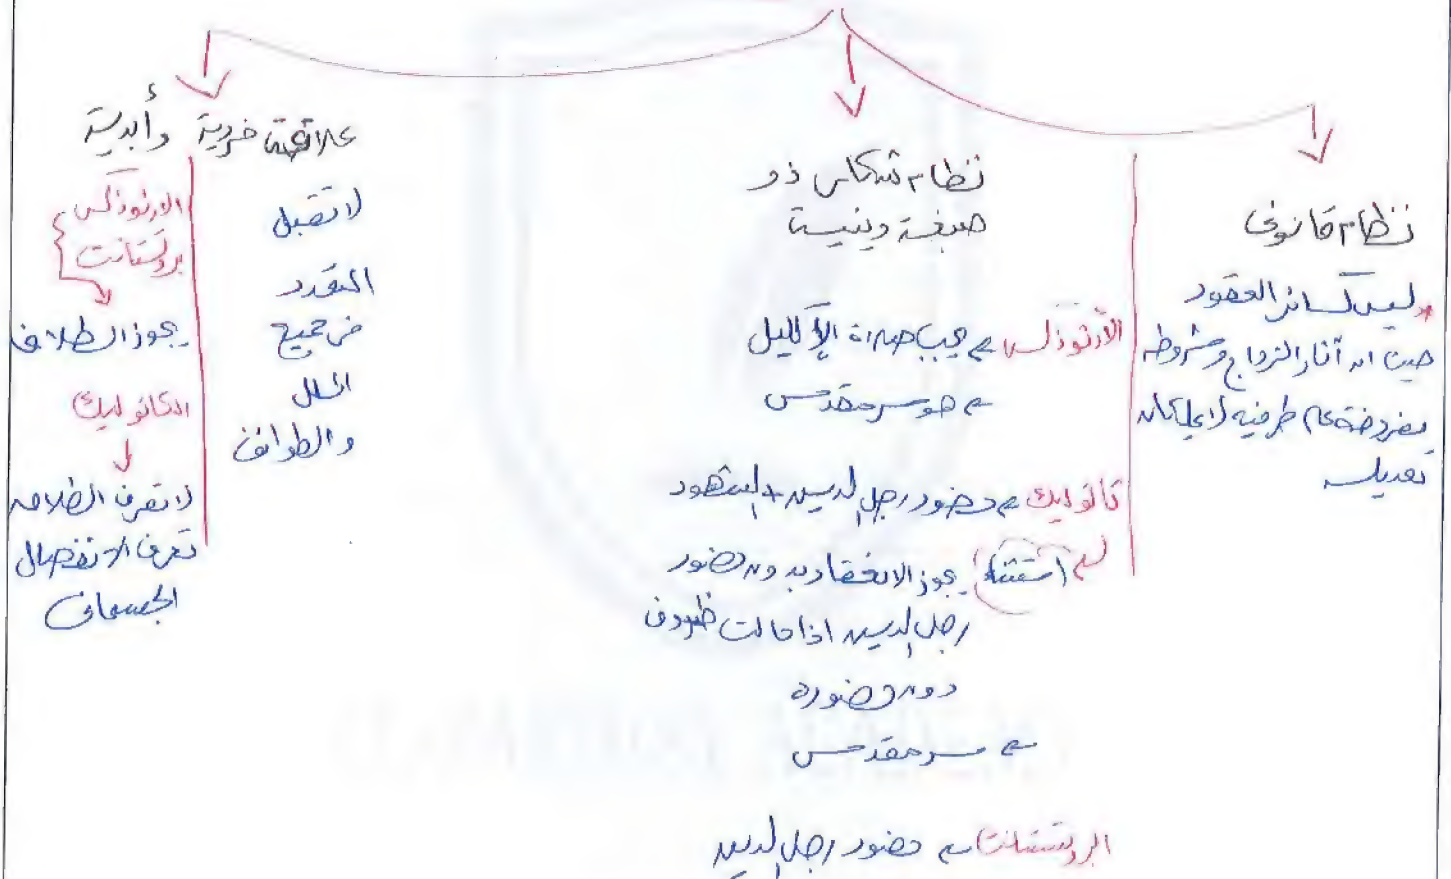 نظام قانونى
* ليس كسائر العقود
حيث ان آثار الزواج وشروطه
مفروضة على طرفيه لا يملكان
تعديله
نظام شكلى ذو
صبغة دينية
الأرثوذكس ← يجب صلاة الإكليل
← هو سر مقدس
كاثوليك ← حضور رجل الدين + الشهود
استثناء يجوز الانعقاد بدون حضور
رجل الدين اذا حالت ظروف
دون حضوره
← سر مقدس
البروتستانت ← حضور رجل الدين
علاقة فردية وأبدية
لا تقبل
التعدد
فى جميع
الملل
والطوائف
الارثوذكس
بروتستانت
يجوز الطلاق
الكاثوليك
لا تعرف الطلاق
تعرف الانفصال
الجسمانى